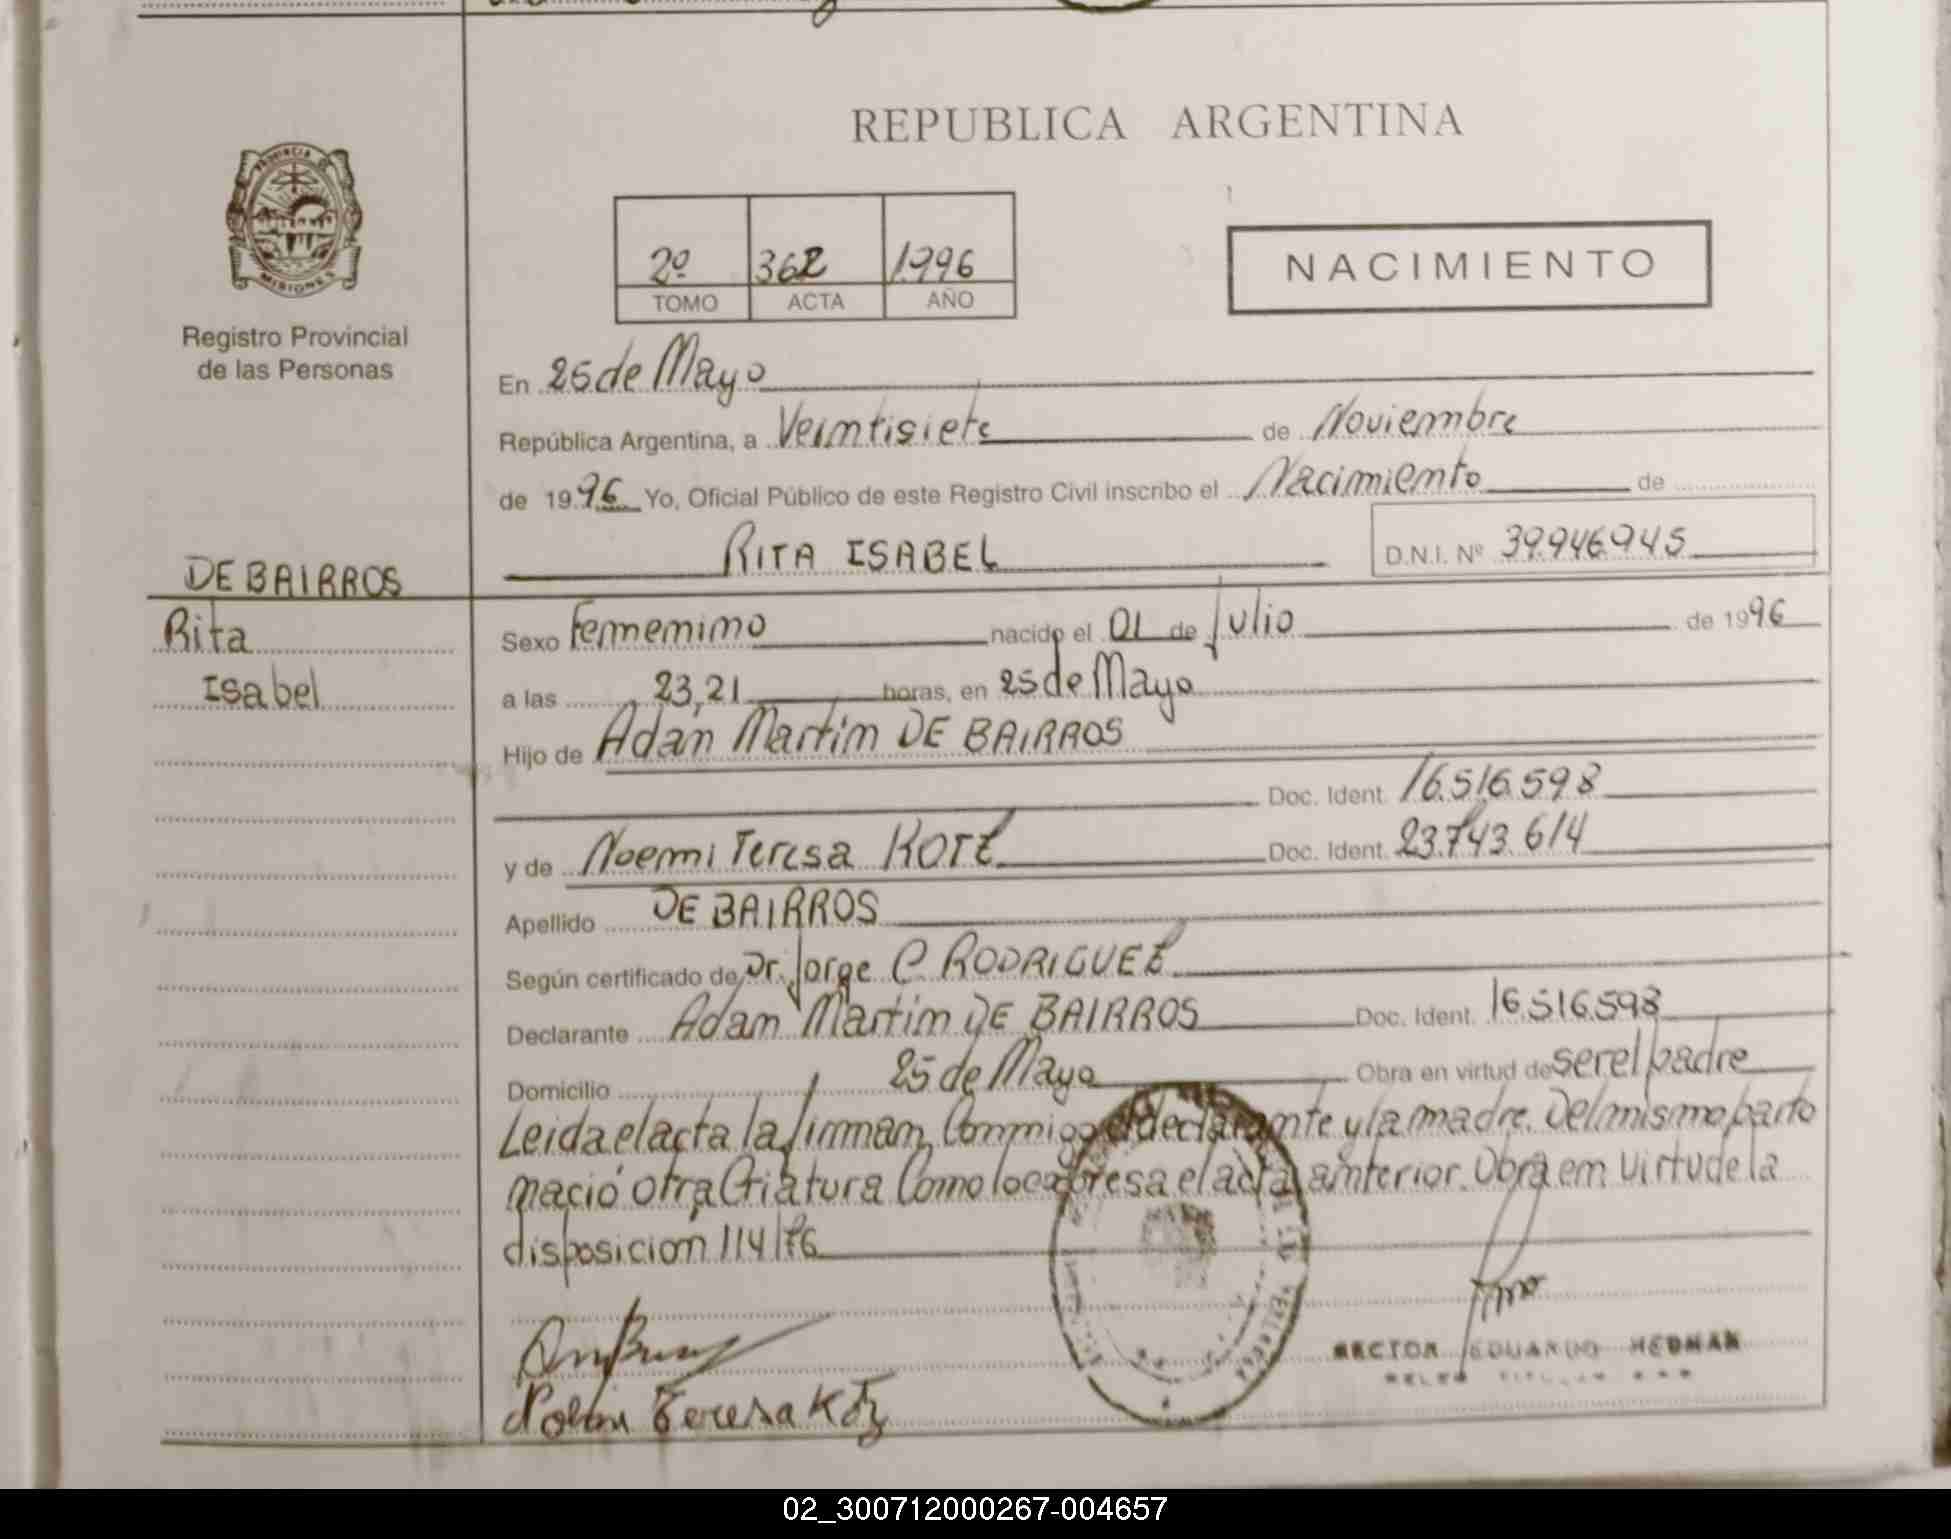 REPUBLICA ARGENTINA
PROVINCIA DE
MISIONES
Registro Provincial
de las Personas
2º 362 1996
TOMO ACTA AÑO
NACIMIENTO
En 25 de Mayo
República Argentina, a Veintisiete de Noviembre
de 1996 Yo, Oficial Público de este Registro Civil inscribo el Nacimiento de
RITA ISABEL D.N.I. Nº 39.946.945
DE BAIRROS
Rita
Isabel
Sexo Femenino nacido el 01 de Julio de 1996
a las 23,21 horas, en 25 de Mayo
Hijo de Adan Martin DE BAIRROS
Doc. Ident. 16.516.598
y de Noemi Teresa KOTZ Doc. Ident. 23.743.614
Apellido DE BAIRROS
Según certificado de Dr. Jorge C. RODRIGUEZ
Declarante Adan Martin DE BAIRROS Doc. Ident. 16.516.598
Domicilio 25 de Mayo Obra en virtud de ser el padre
Leida el acta la firman Conmigo el declarante y la madre. Del mismo parto
nació otra Criatura Como lo expresa el acta anterior. Obra en Virtud de la
disposicion 114/76
HECTOR EDUARDO HEDMAN
Teresa Kotz
02_300712000267-004657